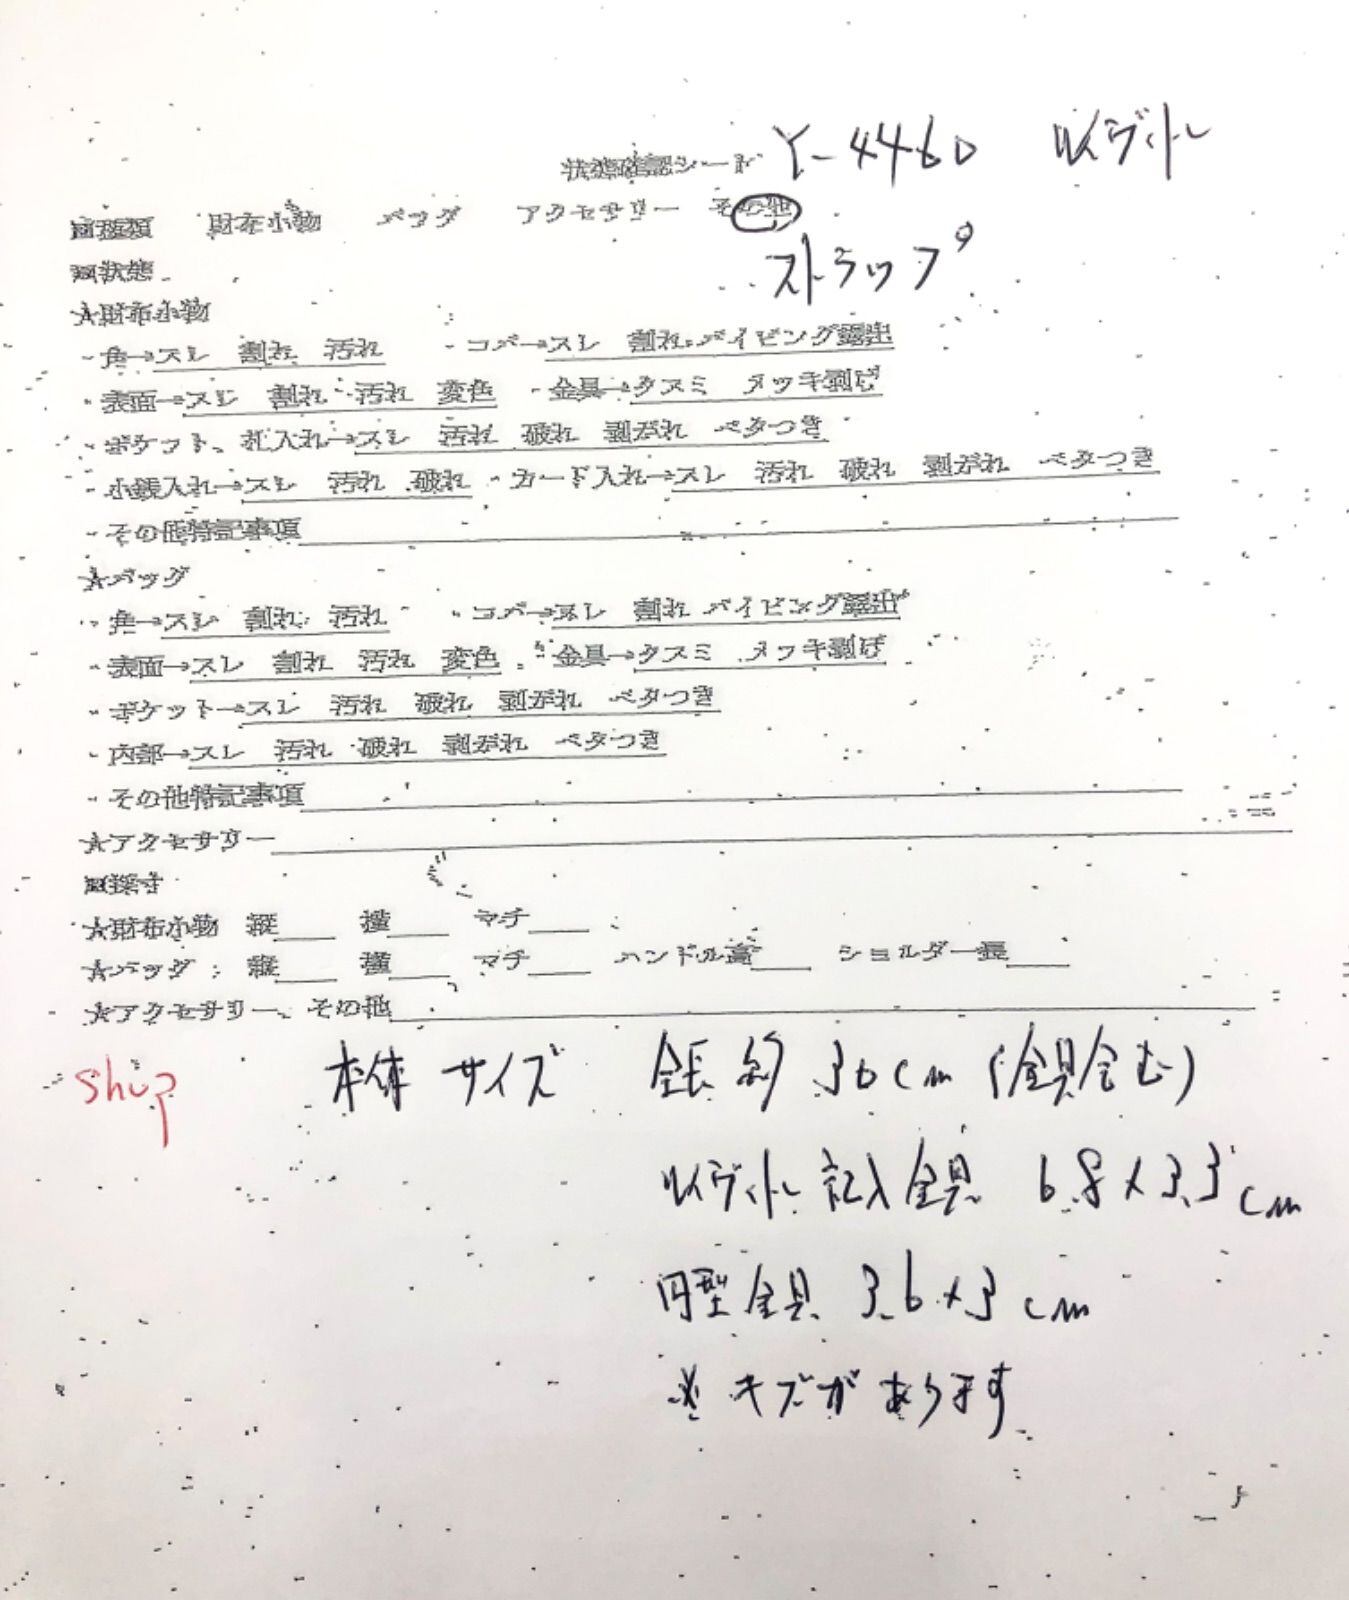 状態確認シート Y-4460 ルイヴィトン
■種類 財布小物 バッグ アクセサリー その他
ストラップ
■状態
★財布小物
・角→スレ 割れ 汚れ ・コバ→スレ 割れ パイピング露出
・表面→スレ 割れ 汚れ 変色 ・金具→クスミ メッキ剥げ
・ポケット、札入れ→スレ 汚れ 破れ 剥がれ ベタつき
・小銭入れ→スレ 汚れ 破れ ・カード入れ→スレ 汚れ 破れ 剥がれ ベタつき
・その他特記事項
★バッグ
・角→スレ 割れ 汚れ ・コバ→スレ 割れ パイピング露出
・表面→スレ 割れ 汚れ 変色 ・金具→クスミ メッキ剥げ
・ポケット→スレ 汚れ 破れ 剥がれ ベタつき
・内部→スレ 汚れ 破れ 剥がれ ベタつき
・その他特記事項
★アクセサリー
■採寸
★財布小物 縦 横 マチ
★バッグ 縦 横 マチ ハンドル高 ショルダー長
★アクセサリー、その他
ship 本体サイズ 全長約30cm(金具含む)
ルイヴィトン記入金具 6.8×3.3cm
円型金具 3.6×3cm
※キズがあります